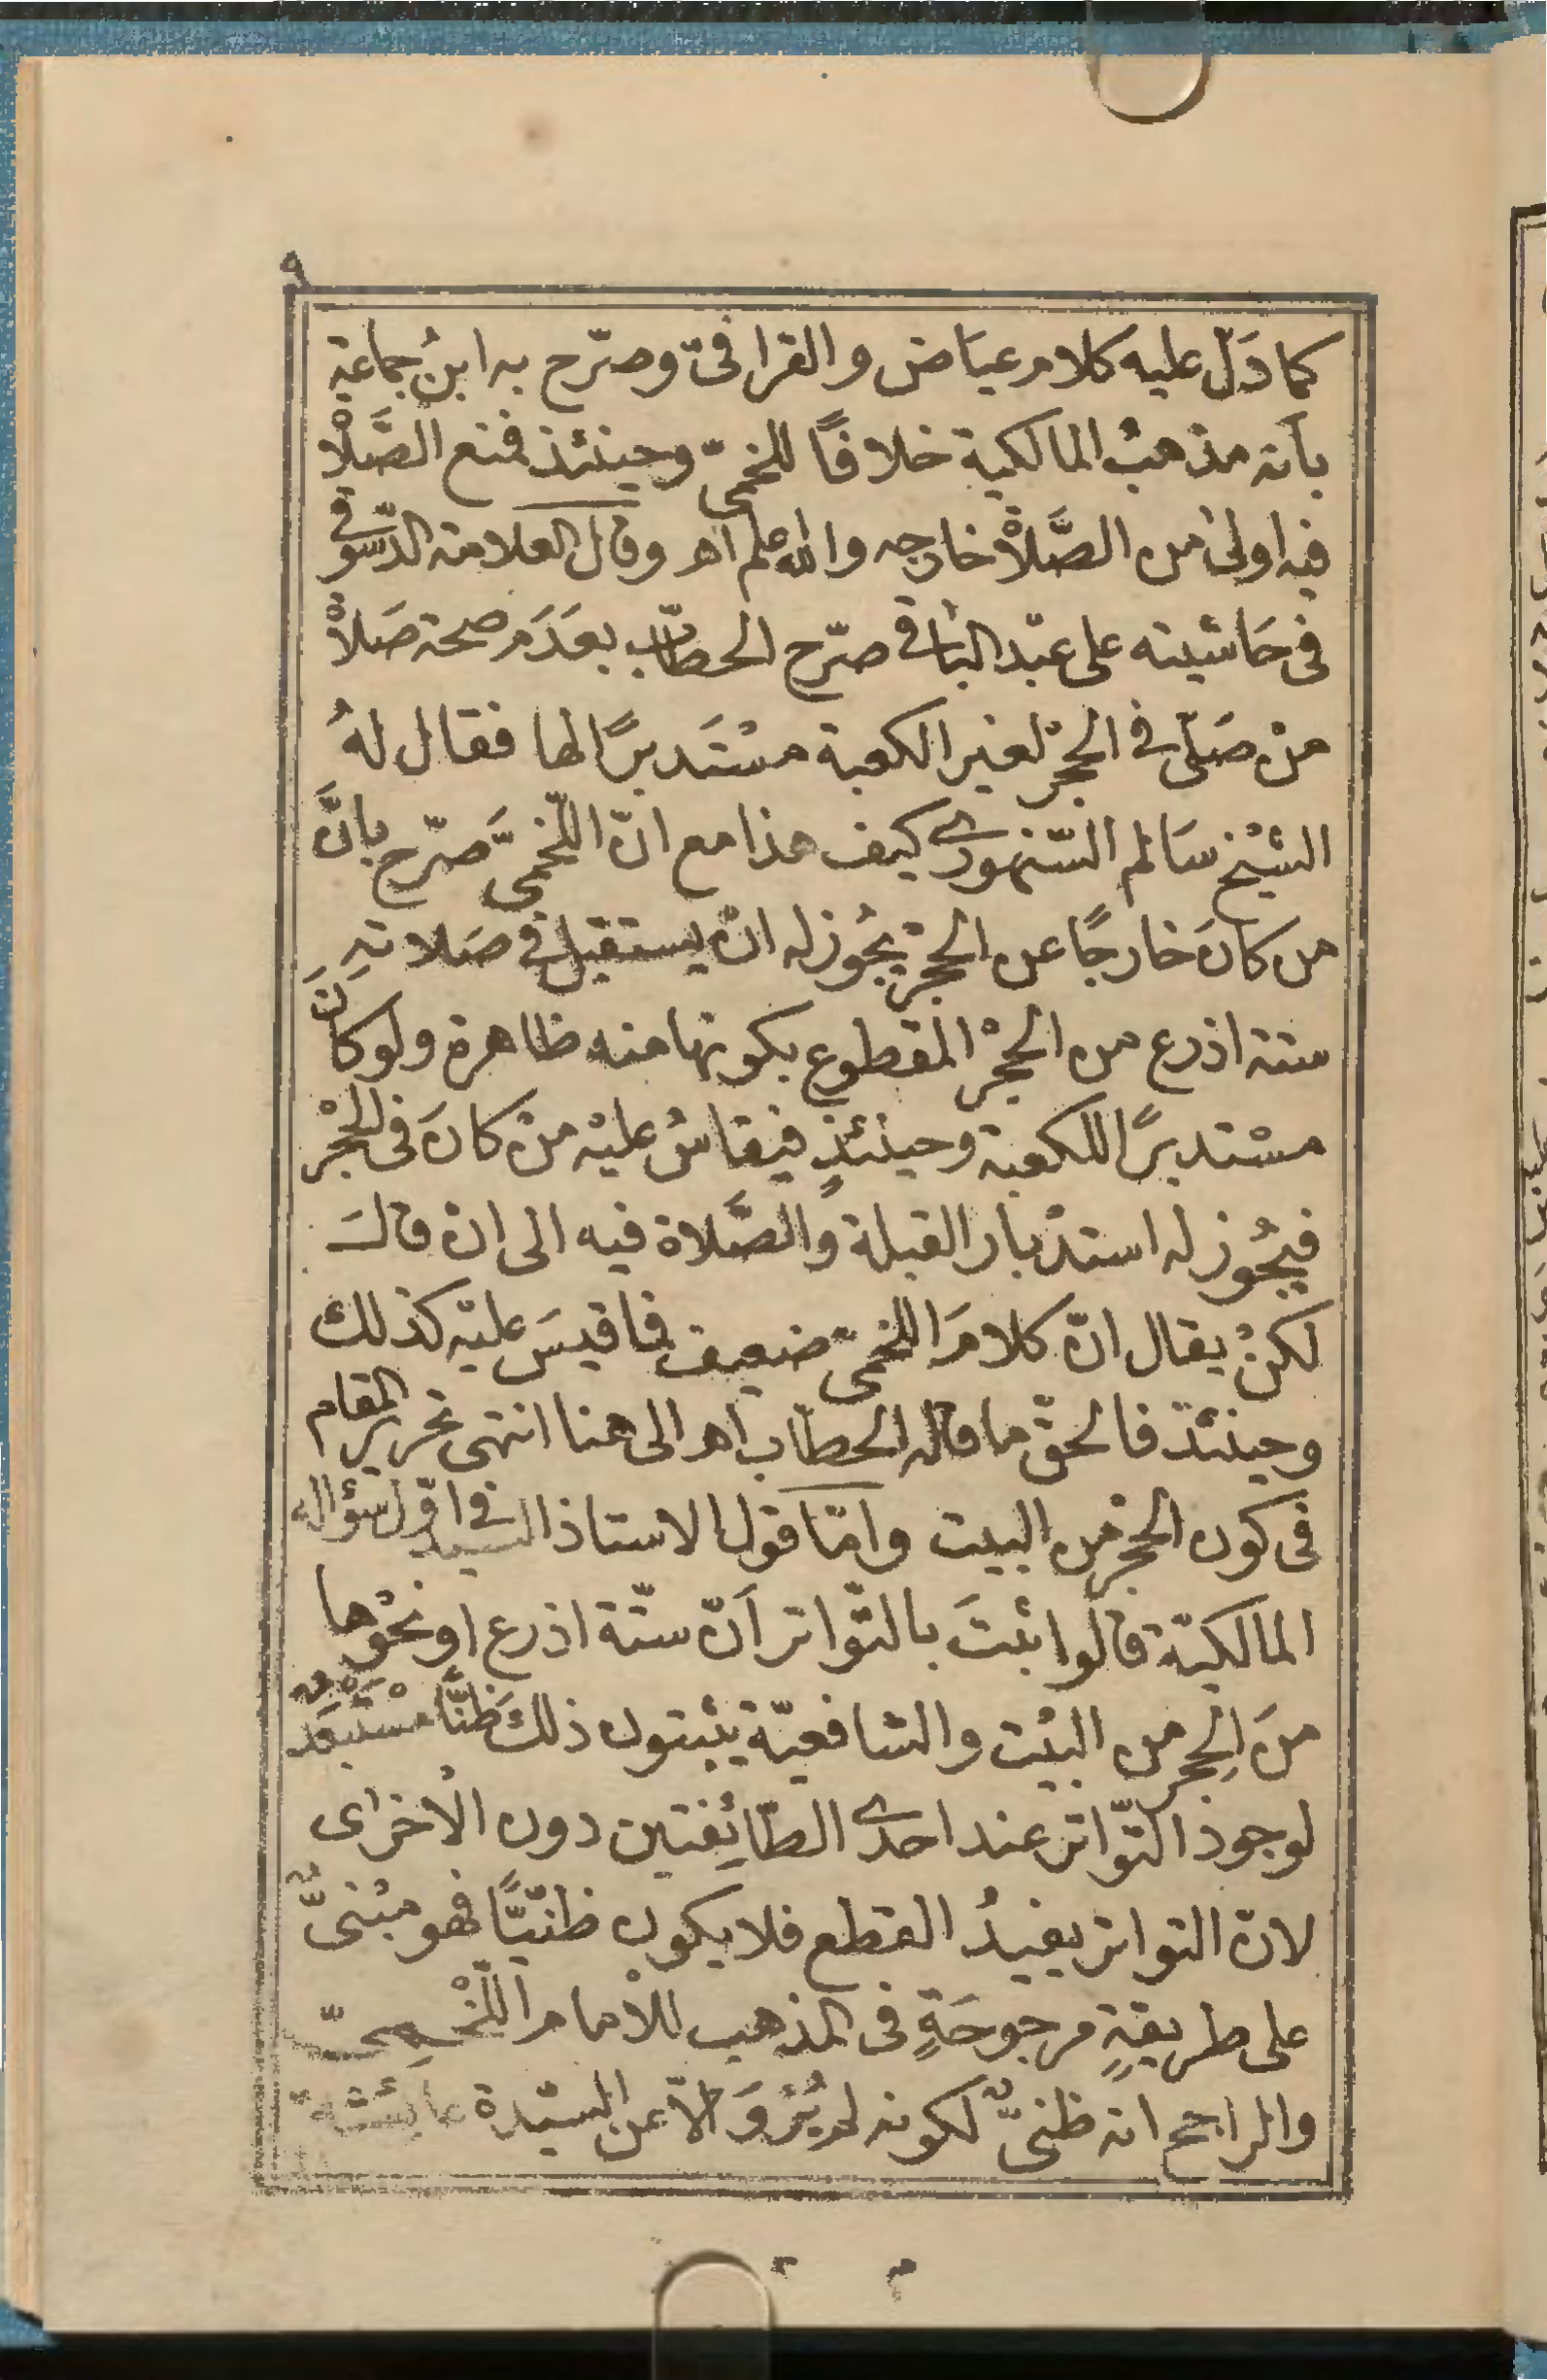 ٩
كما دَلّ عليه كلام عيَاض والقرافىّ وصرّح به ابنُ جماعةِ
بأنه مذهبُ المالكية خلافًا للخمىّ وحينئذ فمنع الصَّلاة
فيه اولى من الصَّلاة خارجه والله اعلم اهـ وقال العلامة الدّسوقى
فى حَاشيته على عبْد البَاقى صرّح الحطّاب بعَدَم صحة صَلاة
منْ صَلّى فى الحِجْر لغير الكعبة مسْتَدبرًا لها فقال لهُ
الشيْخ سَالم السّنهورى كيف هذا مع انّ اللّخمىَّ صرّح بانَّ
من كانَ خارجًا عن الحِجْر يجُوز له انْ يستقبل فى صَلاتهِ
ستة اذرع من الحِجْر المقطوع بكونها منه ظاهرة ولو كانَ
مسْتدبرًا للكعبة وحينئذٍ فيقاسُ عليْه منْ كانَ فى الحِجْر
فيجُوز له استدْبار القبلة والصَّلاة فيه الى ان قالَ
لكنْ يقال انّ كلامَ اللخمىّ ضعيف فما قيسَ عليْه كذلك
وحينئذ فالحقّ ما قاله الحطّاب اهـ الى هنا انتهى تحرير المقام
فى كون الحِجْر من البيت وامّا قول الاستاذ السيد فى اوّل سُؤاله
المالكيّة قالوا ثبتَ بالتّواتر اَنّ ستّة اذرع او نحْوها
منَ الحِجر من البيْت والشافعيّة يثبتون ذلكَ ظنًّا مسْتَبْعَدٌ
لوجود التّواتر عند احدَى الطّائِفتين دون الاُخرى
لانّ التواتر يفيدُ القطع فلا يكون ظنّيًّا فهو مبْنىٌّ
على طريقةٍ مرجوحَةٍ فى المذهب للامام اللّخْمِىّ
والراجح انه ظنىٌّ لكونه لم يُرْوَ الاّ عن السيّدة عايشة